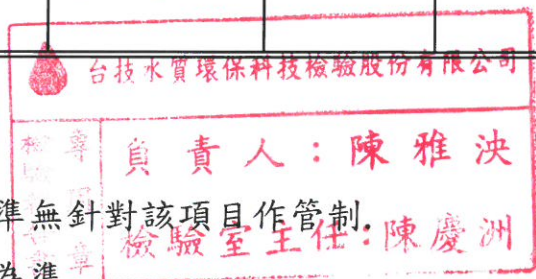 台技水質環保科技檢驗股份有限公司
專用章
負責人：陳雅泱
準無針對該項目作管制.
檢驗室主任：陳慶洲
為準